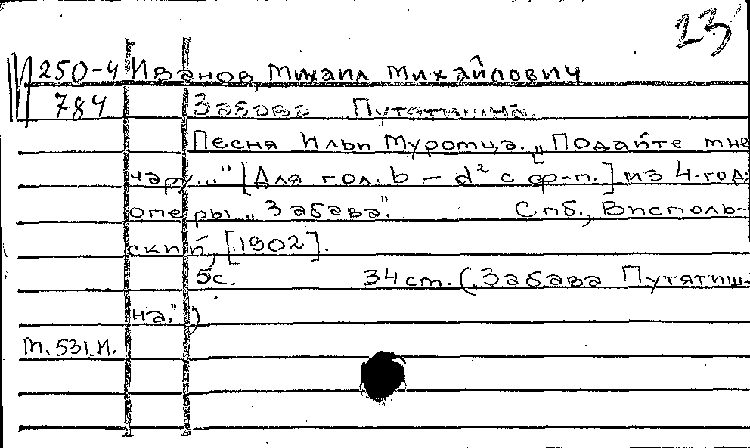 23
М 250-4 Иванов, Михаил Михайлович
784 Забава Путятишна.
Песня Ильи Муромца. „Подайте мне
чару..." [Для гол. b – d² с ф-п.] из 4-год:
оперы „Забава". Спб., Бесселъ-
ский, [1902].
5с. 34 ст. („Забава Путятиш-
на.")
т. 531.И.